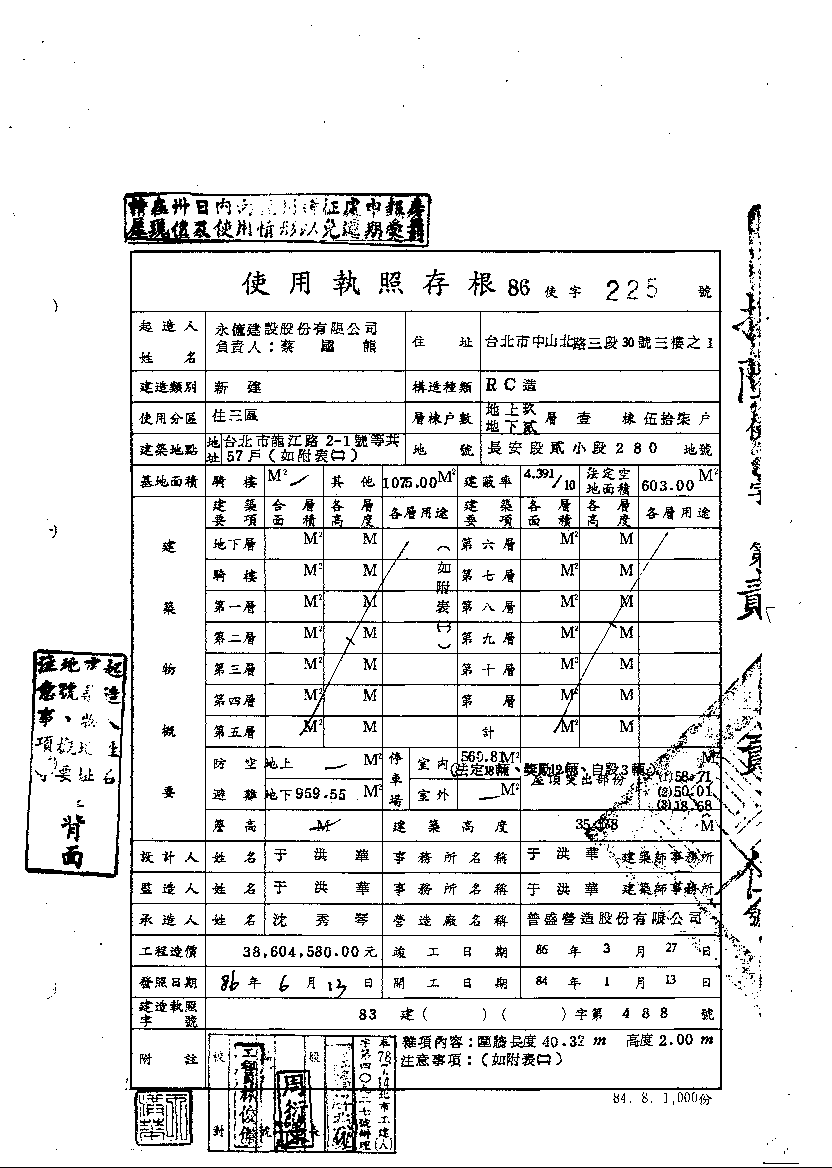 使用執照存根 86 使字 225 號
起造人姓名 永億建設股份有限公司 負責人：蔡國熊 住址 台北市中山北路三段30號三樓之1
建造類別 新建 構造種類 RC造
使用分區 住三區 層棟户數 地上玖 地下貳 層 壹 棟 伍拾柒 户
建築地點 地址 台北市龍江路2-1號等共57戶（如附表㈠） 地號 長安段貳小段280 地號
基地面積 騎樓 M² 其他 1075.00M² 建蔽率 4.391/10 法定空地面積 603.00 M²
建築要項 合層面積 各層高度 各層用途 建築要項 各層面積 各層高度 各層用途
建築物概要
地下層 M² M 第六層 M² M
騎樓 M² M 第七層 M² M
第一層 M² M 第八層 M² M
第二層 M² M 第九層 M² M
第三層 M² M 第十層 M² M
第四層 M² M 第 層 M² M
第五層 M² M 計 M² M
（如附表㈠）
防空避難 地上 M² 停車場 室內 569.81M² M
（法定18輛、獎勵12輛、自設3輛）
屋頂突出部份 (1)58.71
(2)50.01
(3)18.68
地下 959.55 M² 室外 M²
簷高 M 建築高度 M
設計人 姓名 于洪華 事務所名稱 于洪華 建築師事務所
監造人 姓名 于洪華 事務所名稱 于洪華 建築師事務所
承造人 姓名 沈秀琴 營造廠名稱 普盛營造股份有限公司
工程造價 38,604,580.00元 竣工日期 86年3月27日
發照日期 86年6月13日 開工日期 84年1月13日
建造執照字號 83 建（ ）（ ）字第 488 號
附註 雜項內容：圍牆長度40.32m 高度2.00m
注意事項：（如附表㈡）
84.8.1,000份
背面